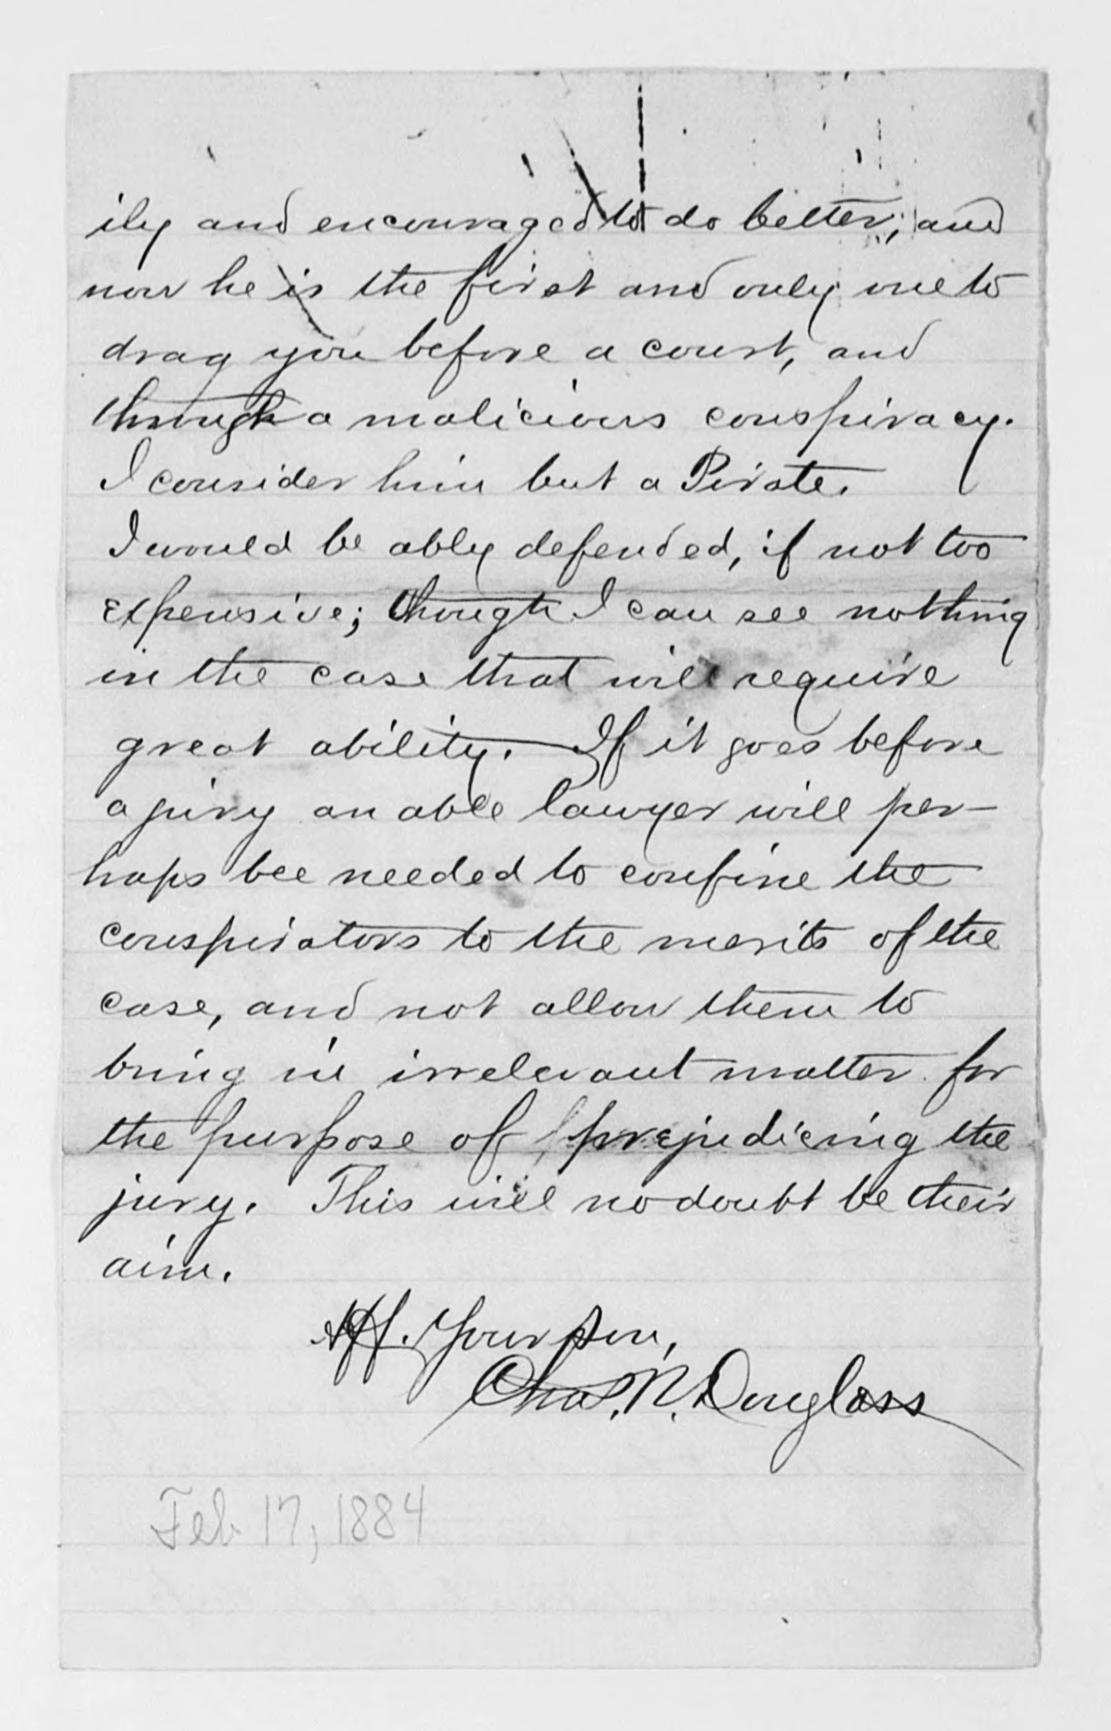 ily and encouraged to do better; and
now he is the first and only one to
drag you before a court, and
through a malicious conspiracy.
I consider him but a Pirate.
I would be ably defended, if not too
expensive; though I can see nothing
in the case that will require
great ability. If it goes before
a jury an able lawyer will per-
haps bee needed to confine the
conspirators to the merits of the
case, and not allow them to
bring in irrelevant matter for
the purpose of prejudicing the
jury. This will no doubt be their
aim.
Aff. Your Son,
Chas. R. Douglass
Feb 17, 1884